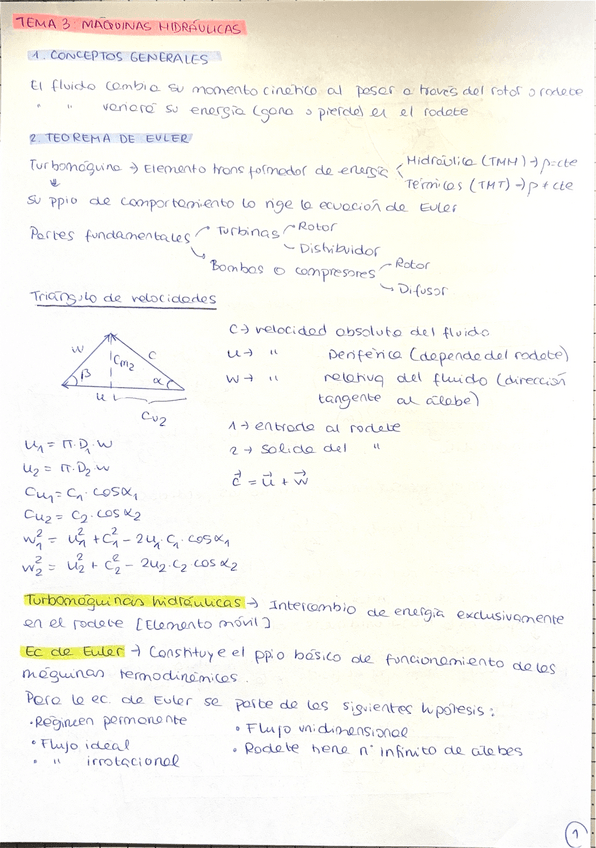 TEMA 3 MÁQUINAS HIDRÁULICAS
1. CONCEPTOS GENERALES
El fluido cambia su momento cinético al pasar a través del rotor o rodete
" " variará su energía (gana o pierde) en el rodete
2. TEOREMA DE EULER
Turbomáquina → Elemento transformador de energía
Hidráulica (TMH) → ρ=cte
Térmicas (TMT) → ρ ≠ cte
Su ppio de comportamiento lo rige la ecuación de Euler
Partes fundamentales
Turbinas
Rotor
Distribuidor
Bombas o compresores
Rotor
Difusor
Triángulo de velocidades
w Cm2 c
β α
u
Cu2
C → velocidad absoluta del fluido
u → " periférica (depende del rodete)
w → " relativa del fluido (dirección
tangente al álabe)
1 → entrada al rodete
2 → salida del "
c = u + w
u1 = π·D1·w
u2 = π·D2·w
Cu1 = C1·cosα1
Cu2 = C2·cosα2
w1² = u1² + C1² - 2u1·C1·cosα1
w2² = u2² + C2² - 2u2·C2 cosα2
Turbomáquinas hidráulicas → Intercambio de energía exclusivamente
en el rodete [Elemento móvil]
Ec de Euler → Constituye el ppio básico de funcionamiento de las
máquinas termodinámicas.
Para la ec. de Euler se parte de las siguientes hipótesis:
· Régimen permanente
· Flujo ideal
· " irrotacional
· Flujo unidimensional
· Rodete tiene nº infinito de álabes
1